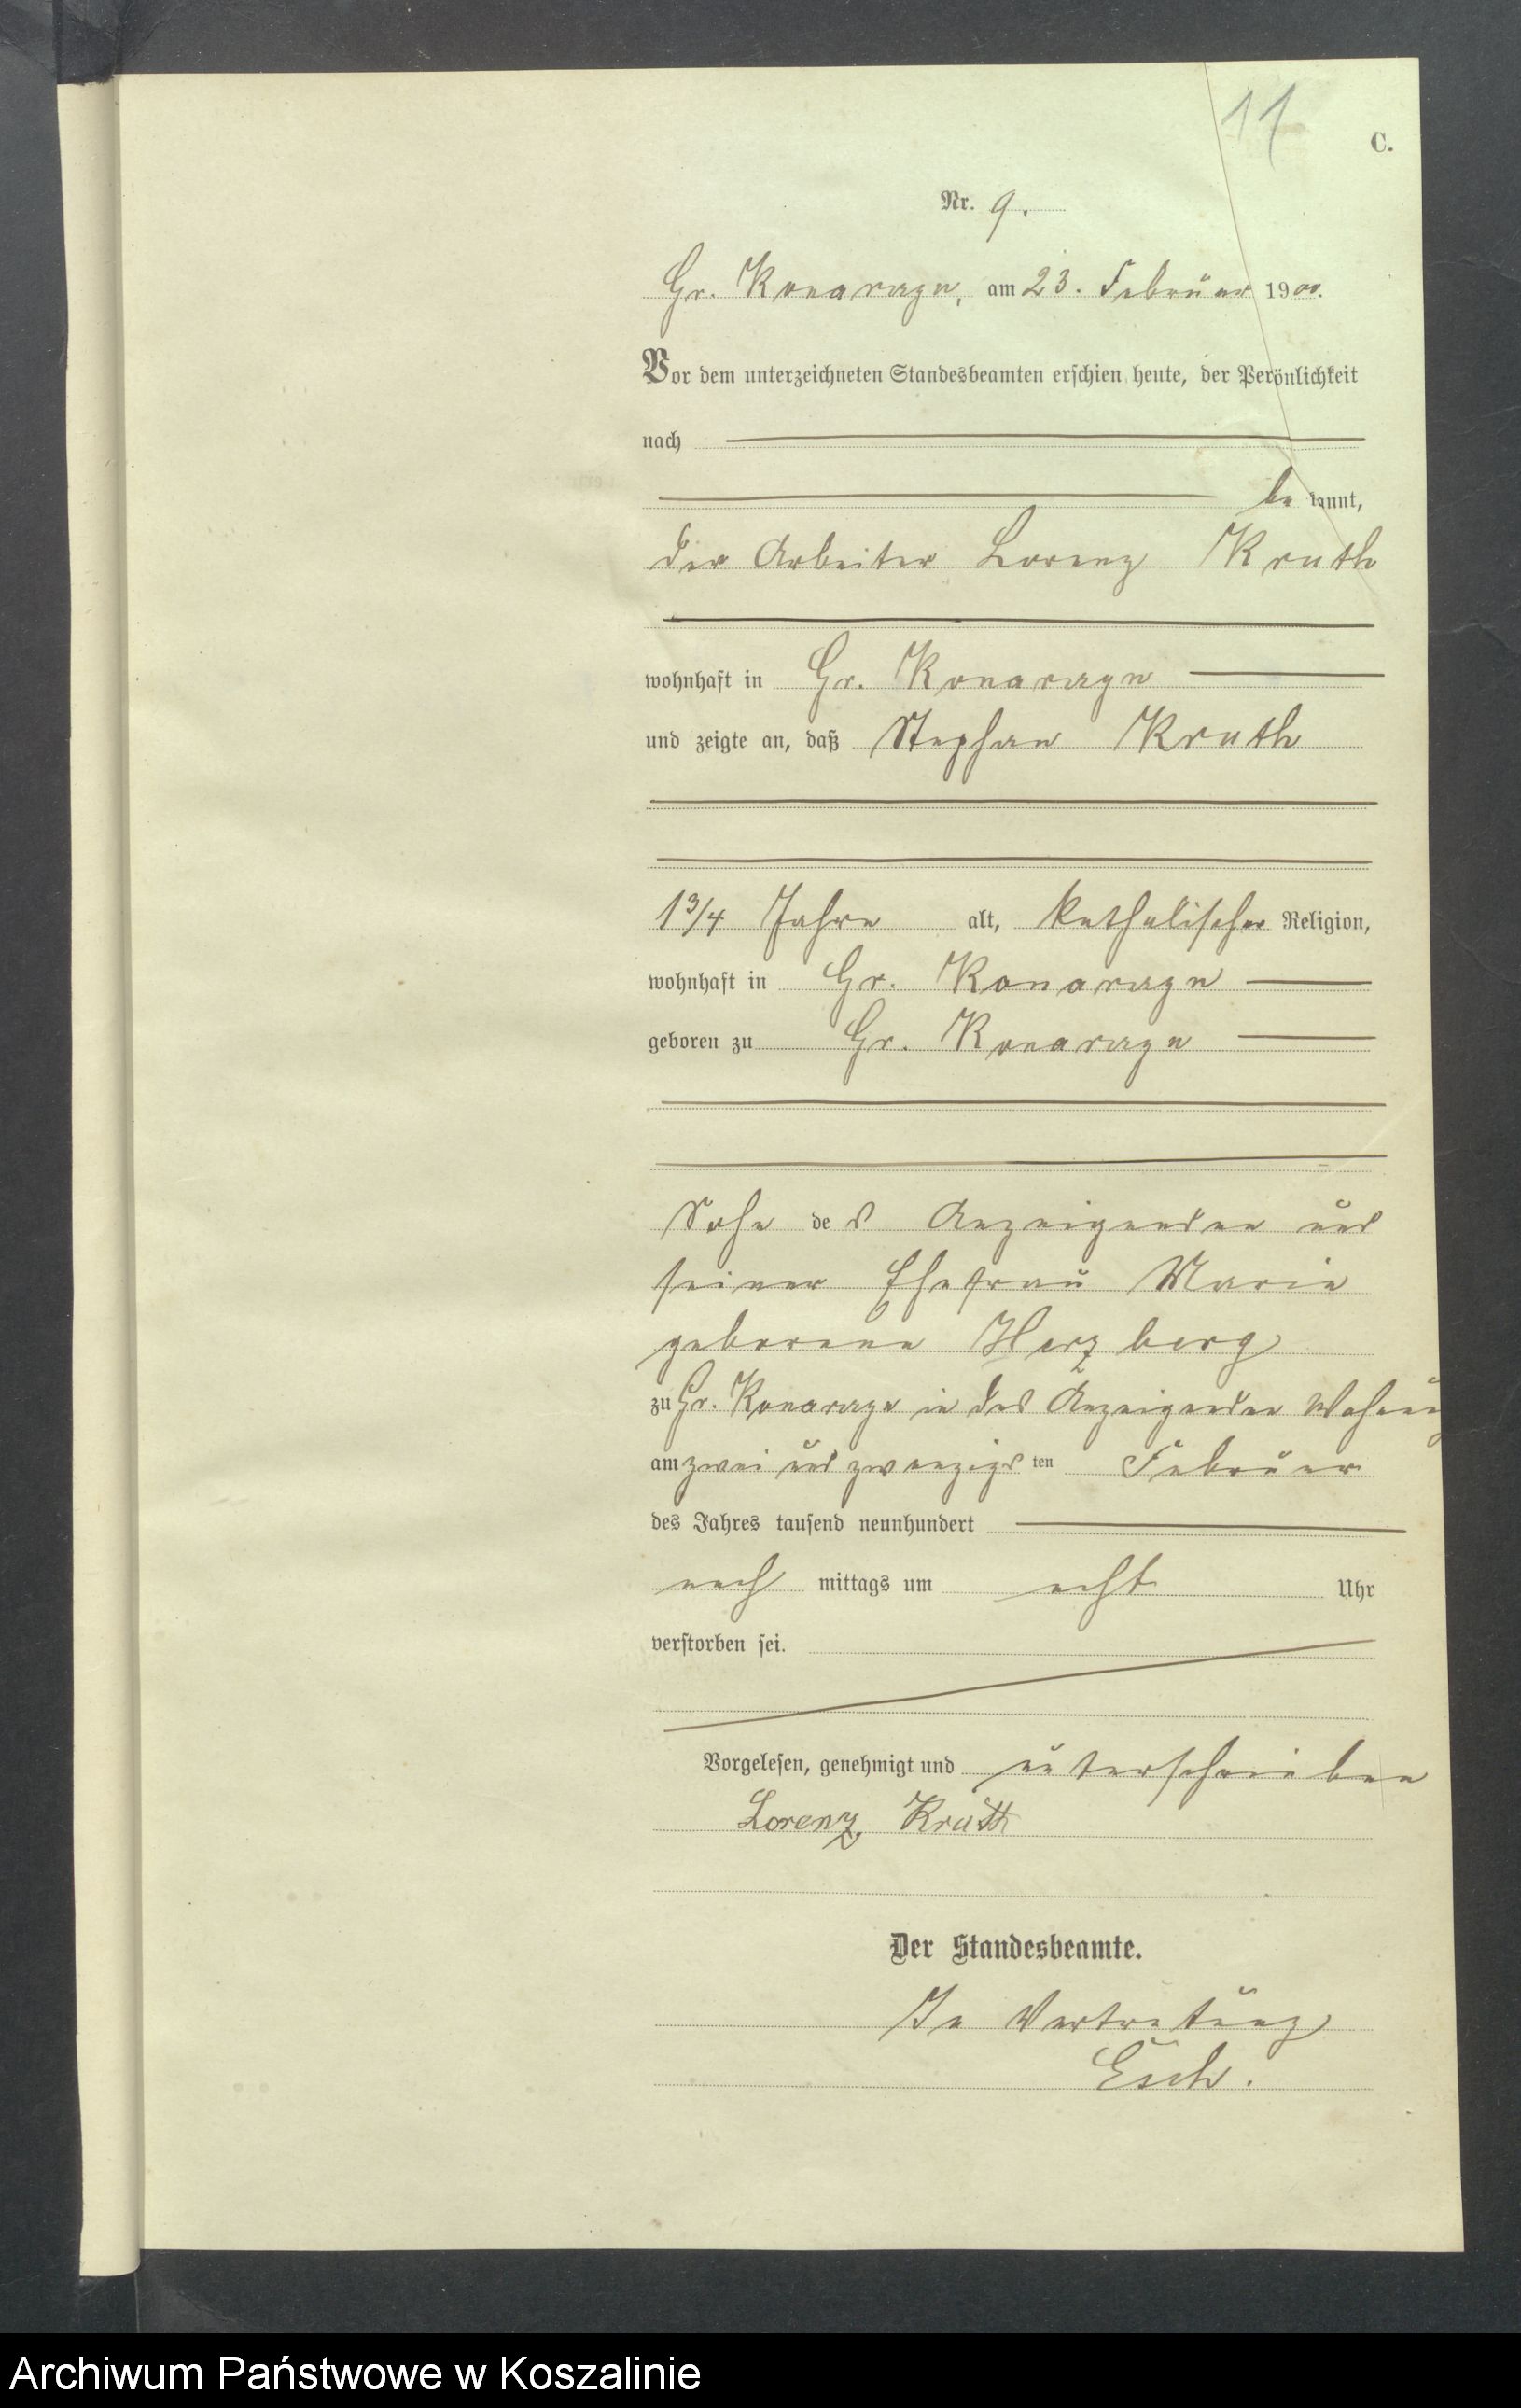 11
C.
Nr. 9.
Gr. Konarzyn, am 23. Februar 1900.
Vor dem unterzeichneten Standesbeamten erschien heute, der Perönlichkeit
nach
be kannt,
der Arbeiter Lorenz Kruth
wohnhaft in Gr. Konarzyn
und zeigte an, daß Stephan Kruth
1 3/4 Jahre alt, katholischer Religion,
wohnhaft in Gr. Konarzyn
geboren zu Gr. Konarzyn
Sohn des Anzeigenden und
seiner Ehefrau Marie
geborene Herzberg
zu Gr. Konarzyn in des Anzeigenden Wohnung
am zwei und zwanzigsten Februar
des Jahres tausend neunhundert
nach mittags um acht Uhr
verstorben sei.
Vorgelesen, genehmigt und unterschrieben
Lorenz Kruth
Der Standesbeamte.
In Vertretung
Esch.
Archiwum Państwowe w Koszalinie